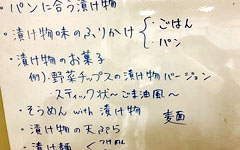 パンに合う漬け物
・漬け物味のふりかけ { ・ごはん
・パン
・漬け物のお菓子
例).野菜チップスの漬け物バージョン
・スティック状～ごま油風～
・そうめん with 漬け物
・漬け物の天ぷら 麦面
・漬け麺